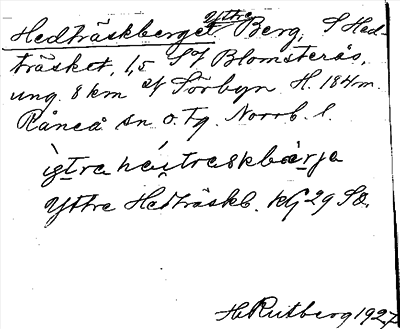 Hedträskberget, Yttre Berg, S Hed-
träsket, 1,5 S of Blomsterås,
ung. 8 km of Sörbyn. H. 184 m.
Råneå sn o. Tg. Norrb. l.
ỳtra hèʹtraskbærja
Yttre Hedträskb. KG 29 SO.
H Rutberg 1927